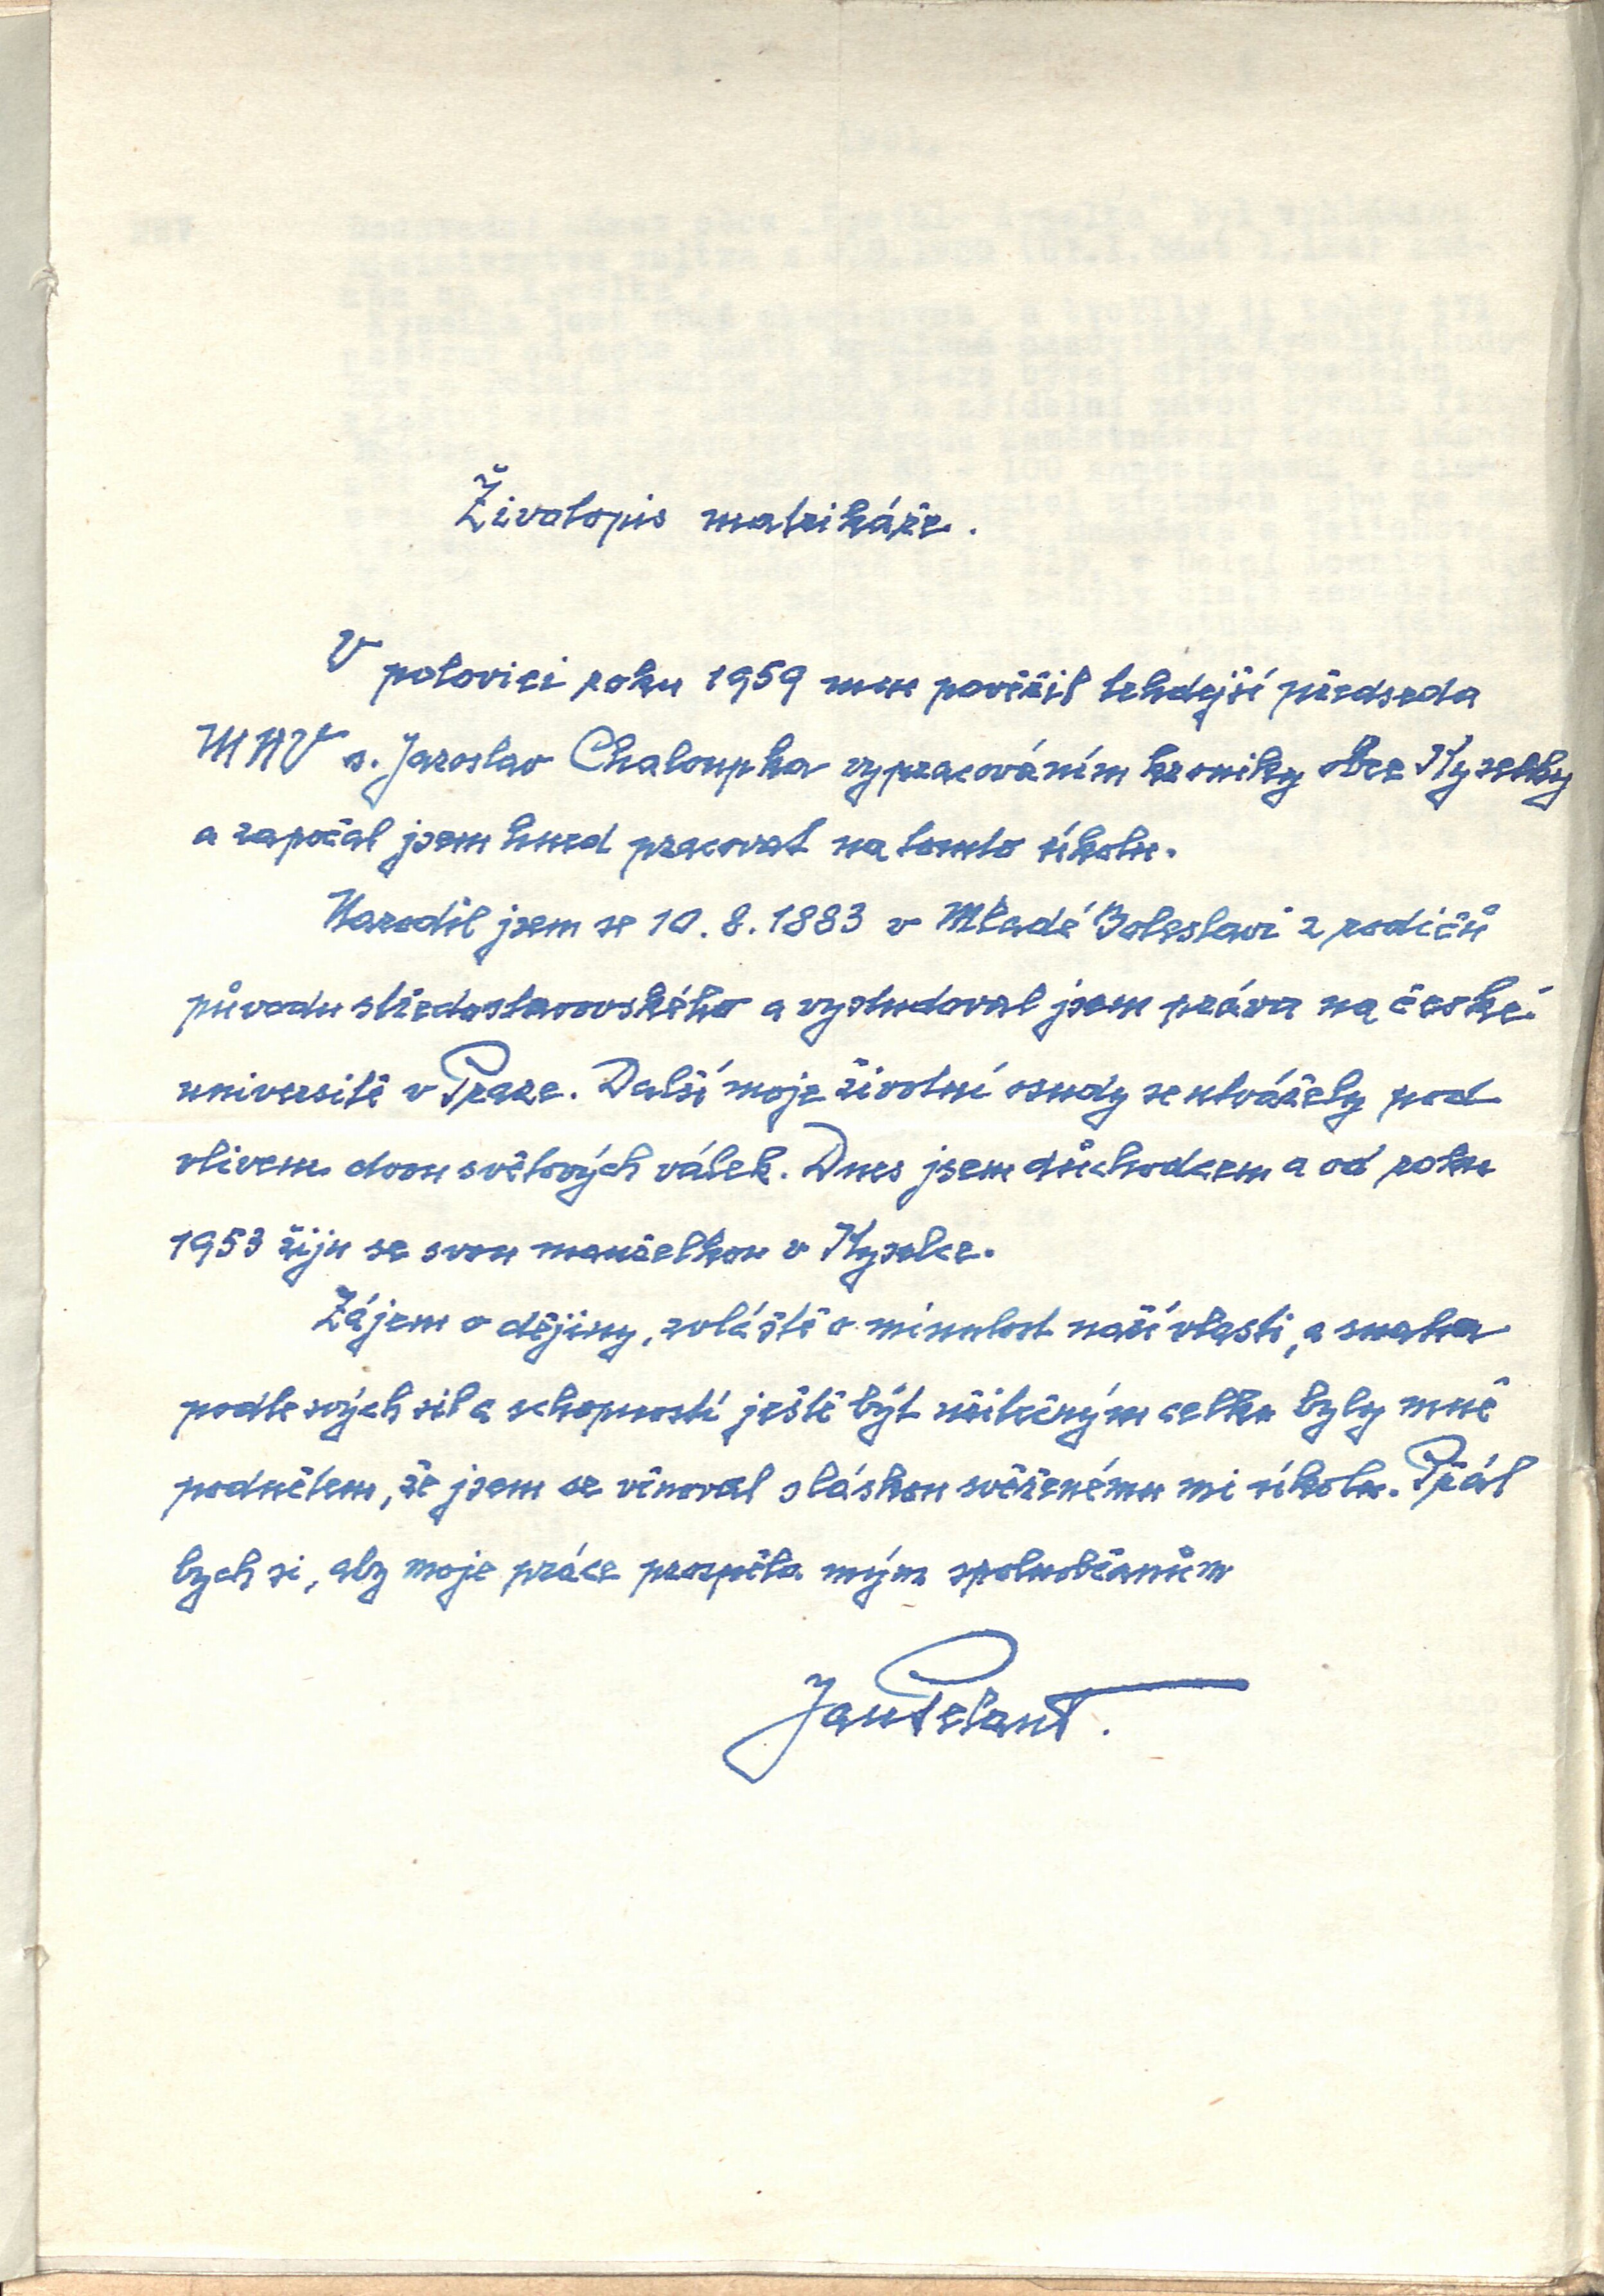 Životopis matrikáře.
V polovici roku 1959 mne pověřil tehdejší předseda
MNV s. Jaroslav Chaloupka vypracováním kroniky obce Kyselky
a započal jsem hned pracovat na tomto úkolu.
Narodil jsem se 10. 8. 1883 v Mladé Boleslavi z rodičů
původu středostavovského a vystudoval jsem práva na české
universitě v Praze. Další moje životní osudy se utvářely pod
vlivem dvou světových válek. Dnes jsem důchodcem a od roku
1953 žiju se svou manželkou v Kyselce.
Zájem o dějiny, zvláště o minulost naší vlasti, a snaha
podle svých sil a schopností ještě být užitečným celku byly mně
podnětem, že jsem se věnoval s láskou svěřenému mi úkolu. Přál
bych si, aby moje práce prospěla mým spoluobčanům
Jan Pelant.